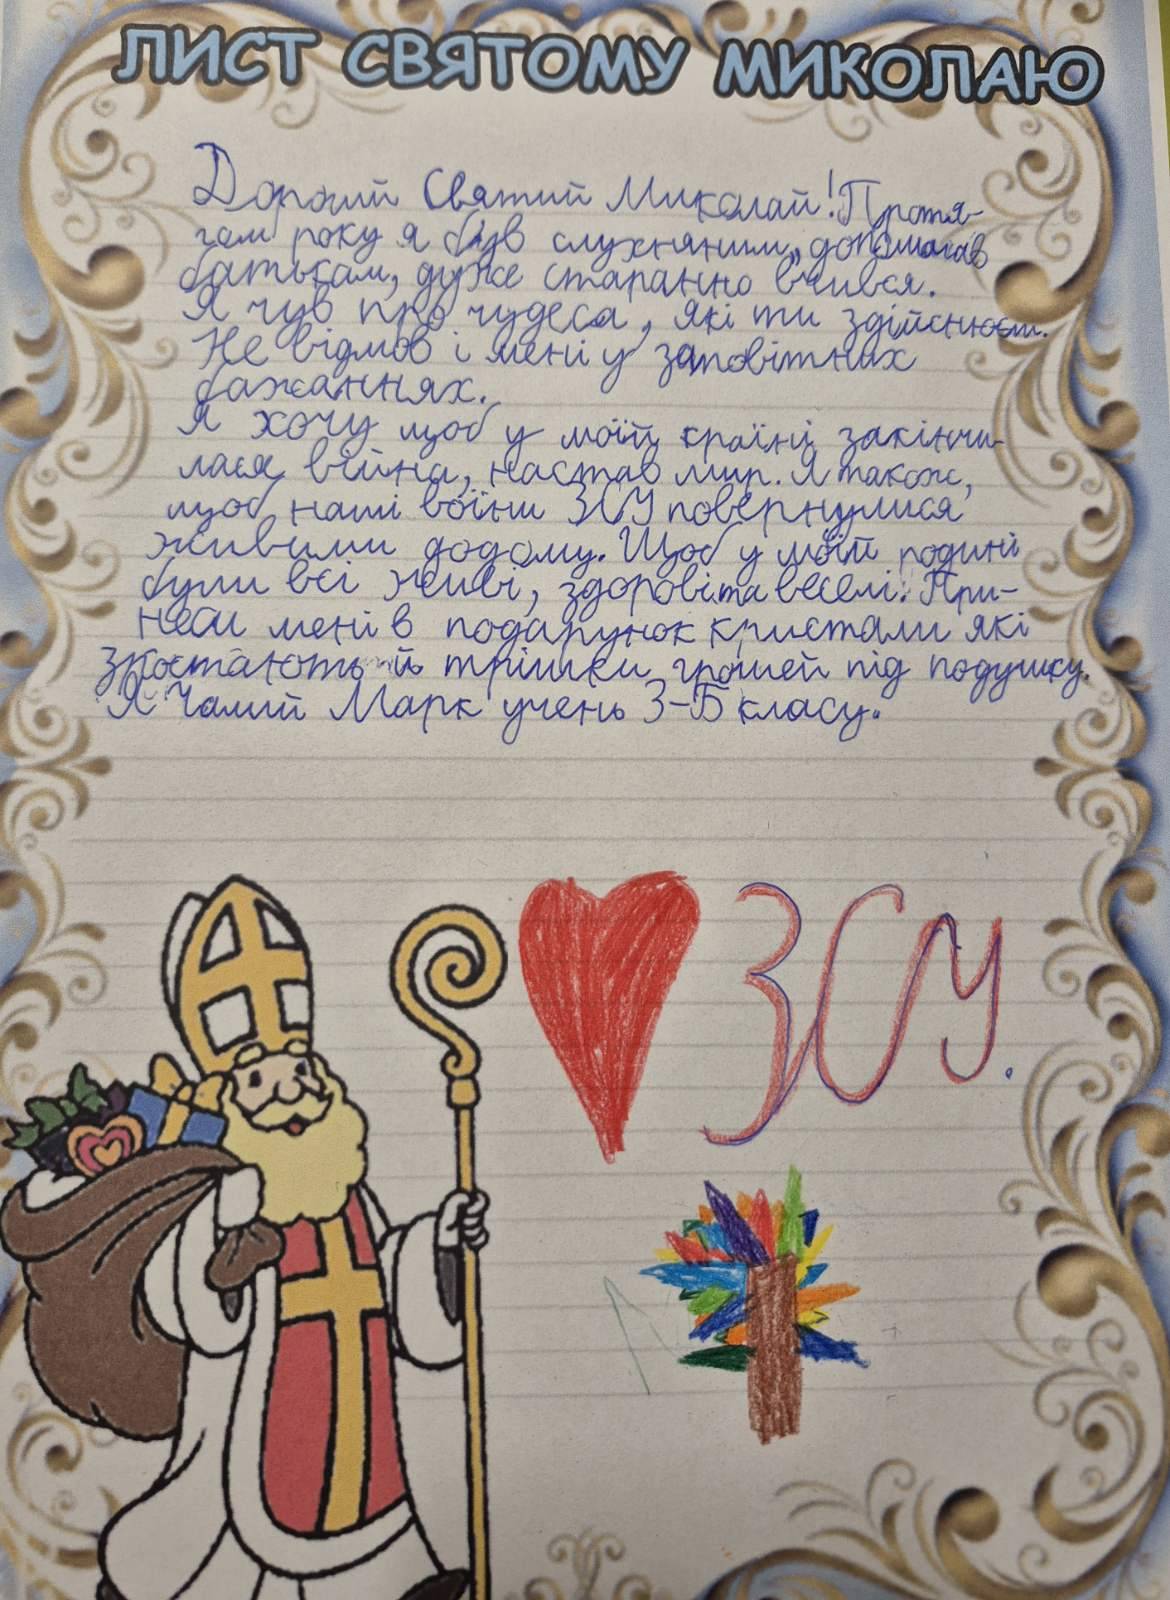 ЛИСТ СВЯТОМУ МИКОЛАЮ
Дорогий Святий Миколай! Протя-
гом року я був слухняним, допомагав
батькам, дуже старанно вчився.
Я чув про чудеса, які ти здійснюєш.
Не відмов і мені у заповітних
бажаннях.
Я хочу щоб у моїй країні закінчи-
лася війна, настав мир. Я також,
щоб наші воїни ЗСУ повернулися
живими додому. Щоб у моїй родині
були всі живі, здорові та веселі. При-
неси мені в подарунок кристали які
зростають й трішки грошей під подушку.
Я Чалий Марк учень 3-Б класу.
ЗСУ.